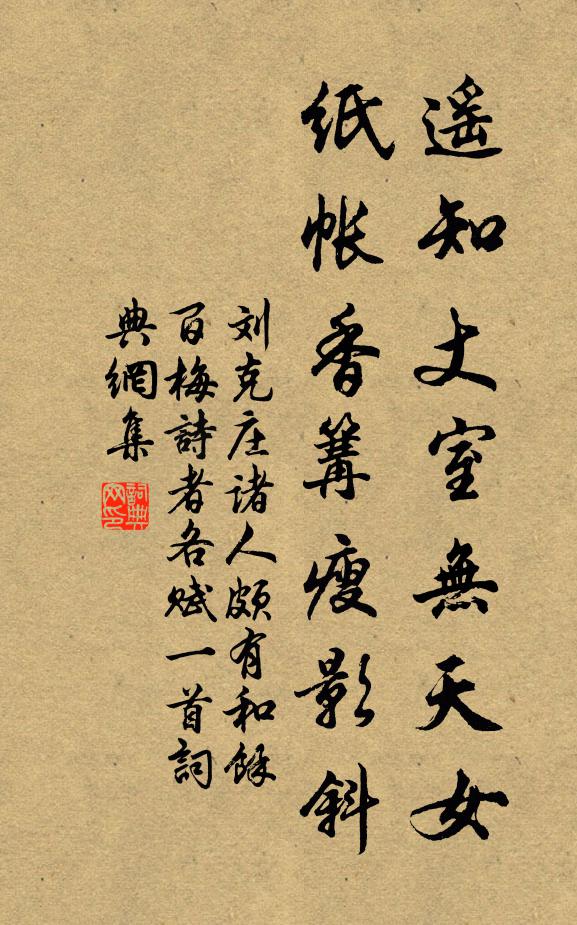 遥知丈室無天女
紙帐香篝瘦影斜
刘克庄諸人頗有和餘
百梅詩者各赋一首詞
典網集
詞典网印